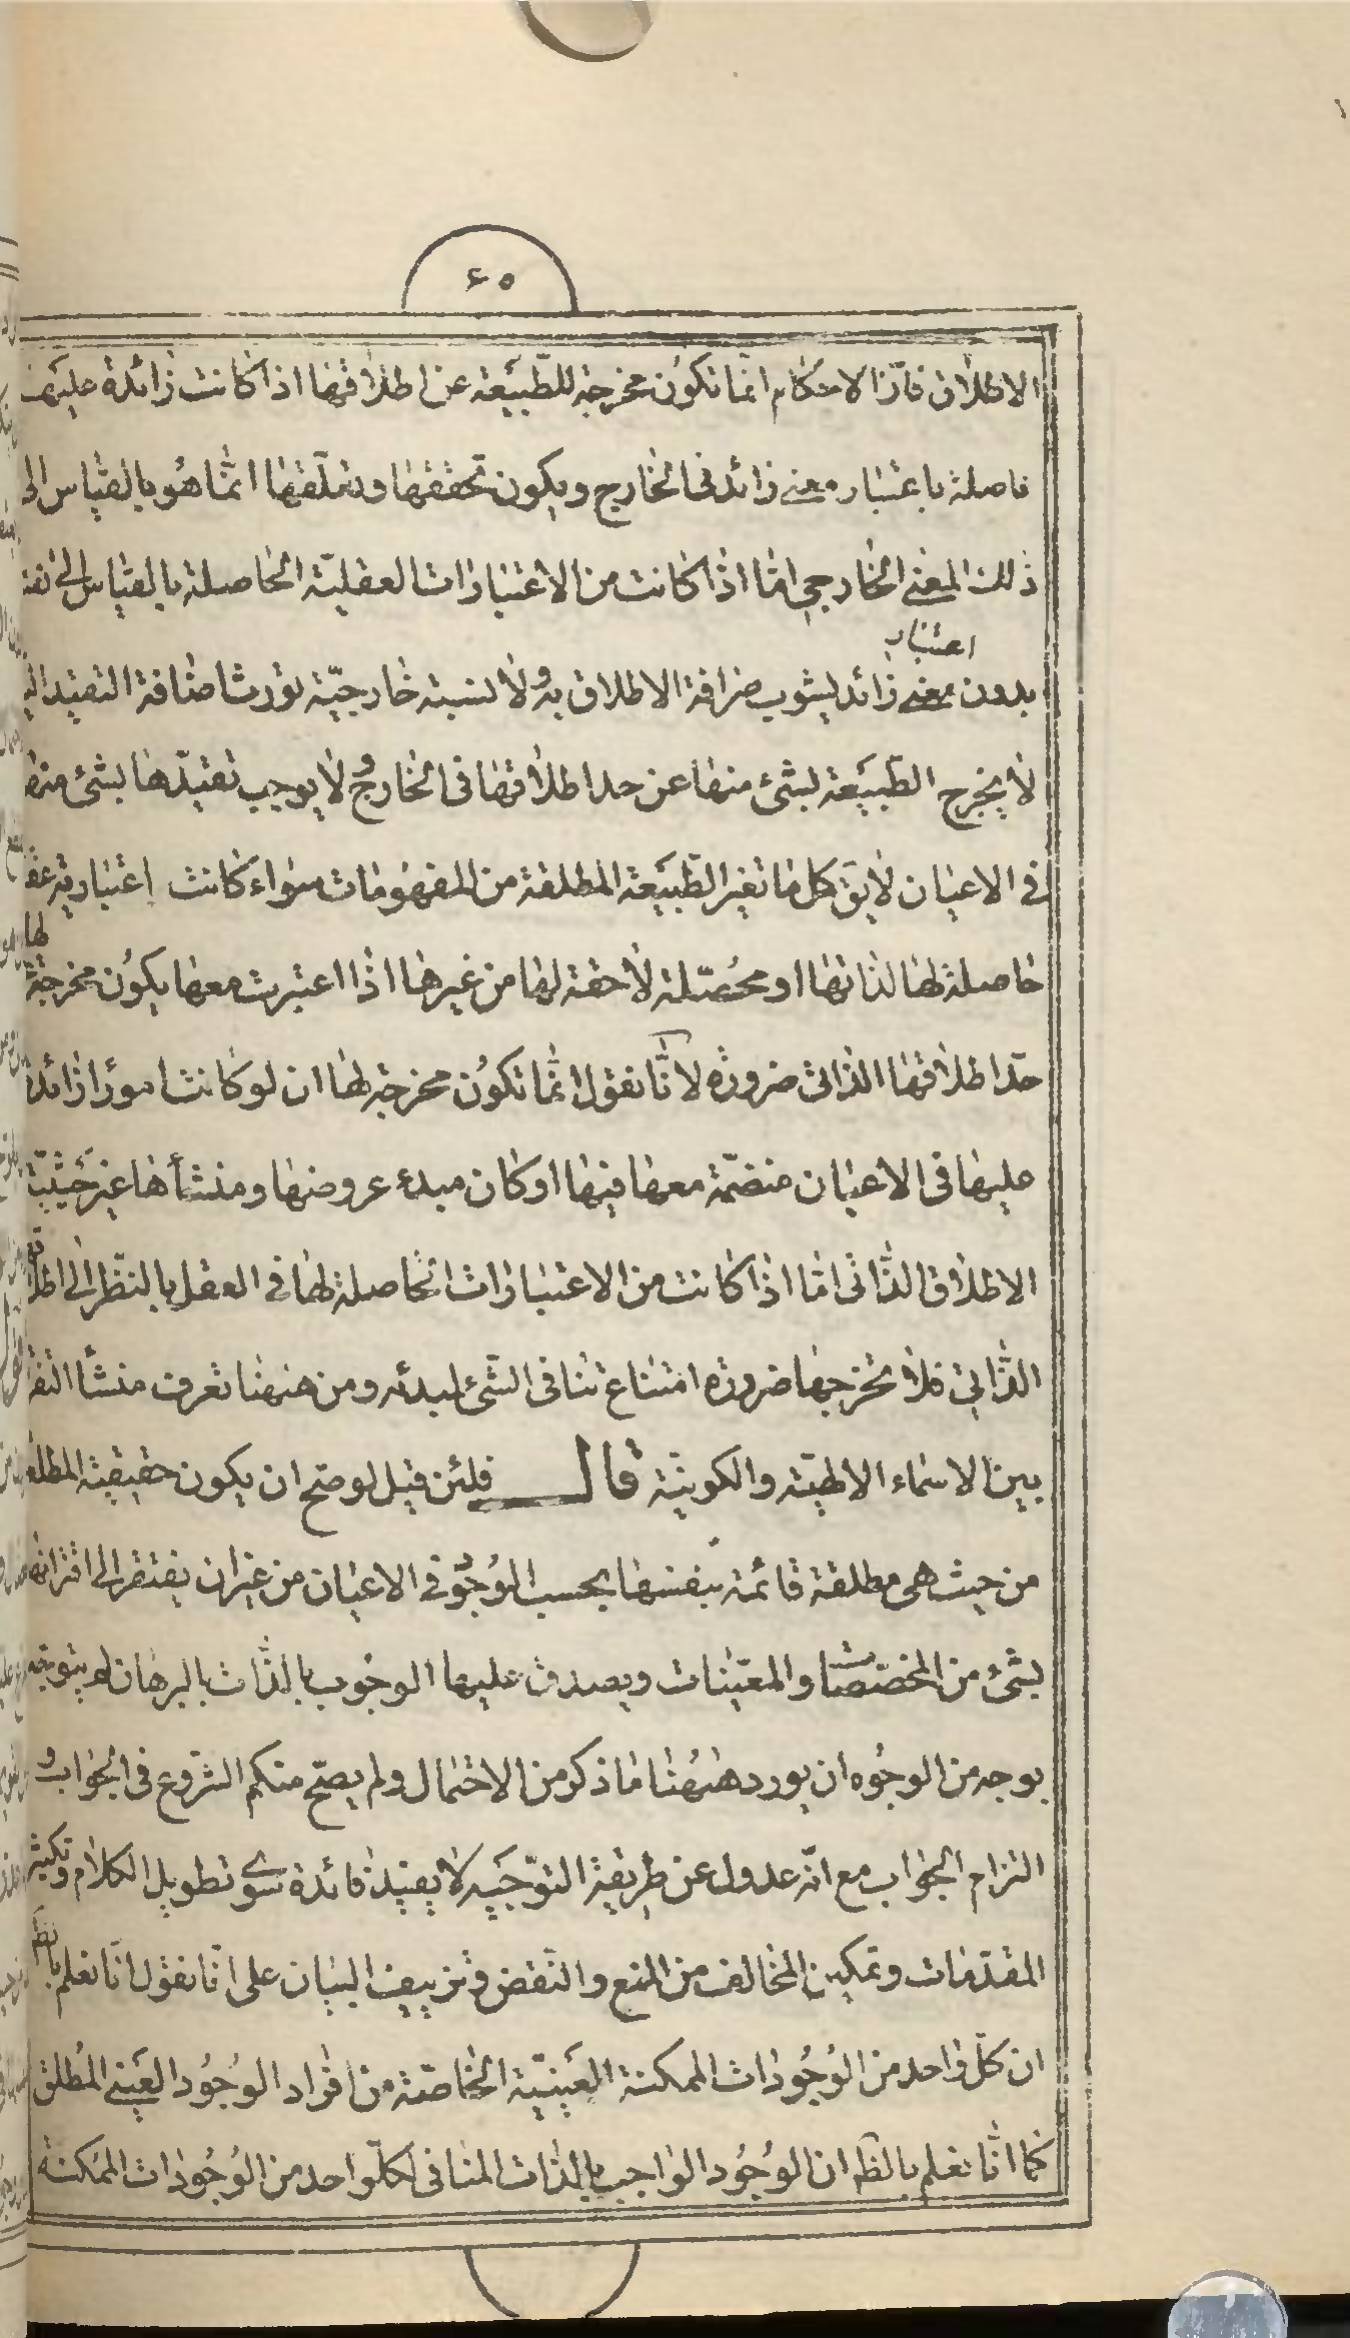 ٦٥
الاطلاق فانّ الاحكام انما تكون مخرجة للطبيعة عن اطلاقها اذا كانت زائدة عليها
باعتبار معنى زائد فى الخارج ويكون تحققها وتعلّقها انما هو بالقياس الى
ذلك المعنى الخارجى امّا اذا كانت من الاعتبارات العقليّة الحاصلة بالقياس الى
اعتبار
بدون معنى زائد يشوب صرافة الاطلاق به ولا نسبة خارجيّة تورث اضافة التقيد
لا يخرج الطبيعة لشئ منها عن حد اطلاقها فى الخارج ولا يوجب تقيّدها بشئ منها
فى الاعيان لا يق كل ما تغير الطبيعة المطلقة من المفهومات سواء كانت اعتبارية
حاصلة لها لذاتها او محصّلة لاحقة لها من غيرها اذا اعتبرت معها يكون مخرجة لها
حدّ اطلاقها الذاتى ضرورة لانّا نقول انّما تكون مخرجة لها ان لو كانت امورا زائدة
عليها فى الاعيان منضمّة معها فيها او كان مبدء عروضها ومنشأها غير حيثيّة
الاطلاق الذّاتى امّا اذا كانت من الاعتبارات الحاصلة لها فى العقل بالنّظر الى
الذّاتى فلا تخرجها ضرورة امتناع تنافى الشّئ لمبدئه ومن هيهنا تعرف منشأ
بين الاسماء الالهيّة والكونيّة قال فلئن قيل لو صحّ ان يكون حقيقية
من حيث هى مطلقة قائمة بنفسها بحسب الوجود فى الاعيان من غير ان يفتقر الى اقترانها
بشئ من المخصّصات والمعيّنات ويصدق عليها الوجوب بالذّات بالبرهان لم يتوجه
بوجه من الوجوه ان يورد هيهنا ما ذكر من الاحتمال ولم يصحّ منكم الشروع فى الجواب و
التزام الجواب مع انّه عدول عن طريقة التوجيه لا يفيد فائدة سوى تطويل الكلام وتكثير
المقدّمات وتمكين المخالف من المنع والنّقض وتزييف البيان على انّا نقول انّا نعلم
ان كلّ واحد من الوجودات الممكنة العينيّة الخاصّة من افراد الوجود العينى المطلق
كما انّا نعلم بالظم ان الوجود الواجب بالذات المنافى لكلّ واحد من الوجودات الممكنة